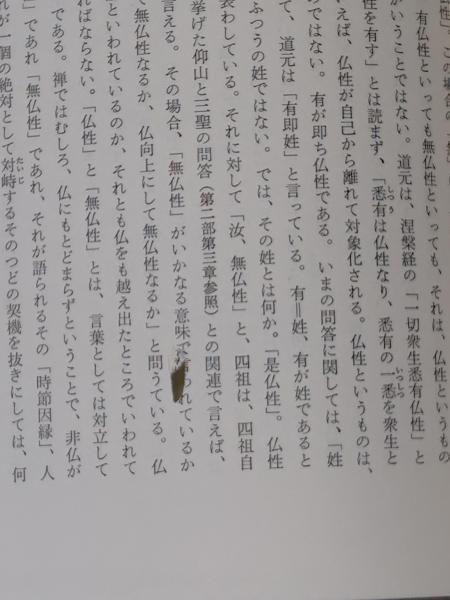 性」。この場合の「無」
有仏性といっても無仏性といっても、それは、仏性というもの
かということではない。道元は、涅槃経の「一切衆生悉有仏性」と
性を有す」とは読まず、「悉有は仏性なり、悉有の一悉を衆生と
いえば、仏性が自己から離れて対象化される。仏性というものは、
のではない。有が即ち仏性である。いまの問答に関しては、「姓
て、道元は「有即姓」と言っている。有=姓、有が姓であると
ふつうの姓ではない。では、その姓とは何か。「是仏性」。仏性
表わしている。それに対して「汝、無仏性」と、四祖は、四祖自
挙げた仰山と三聖の問答(第二部第三章参照)との関連で言えば、
言える。その場合、「無仏性」がいかなる意味で言われているか
で無仏性なるか、仏向上にして無仏性なるか」と問うている。仏
といわれているのか、それとも仏をも越え出たところでいわれて
ればならない。「仏性」と「無仏性」とは、言葉としては対立して
である。禅ではむしろ、仏にもとどまらずということで、非仏が
」であれ「無仏性」であれ、それが語られるその「時節因縁」、人
れが一個の絶対として対峙するそのつどの契機を抜きにしては、何